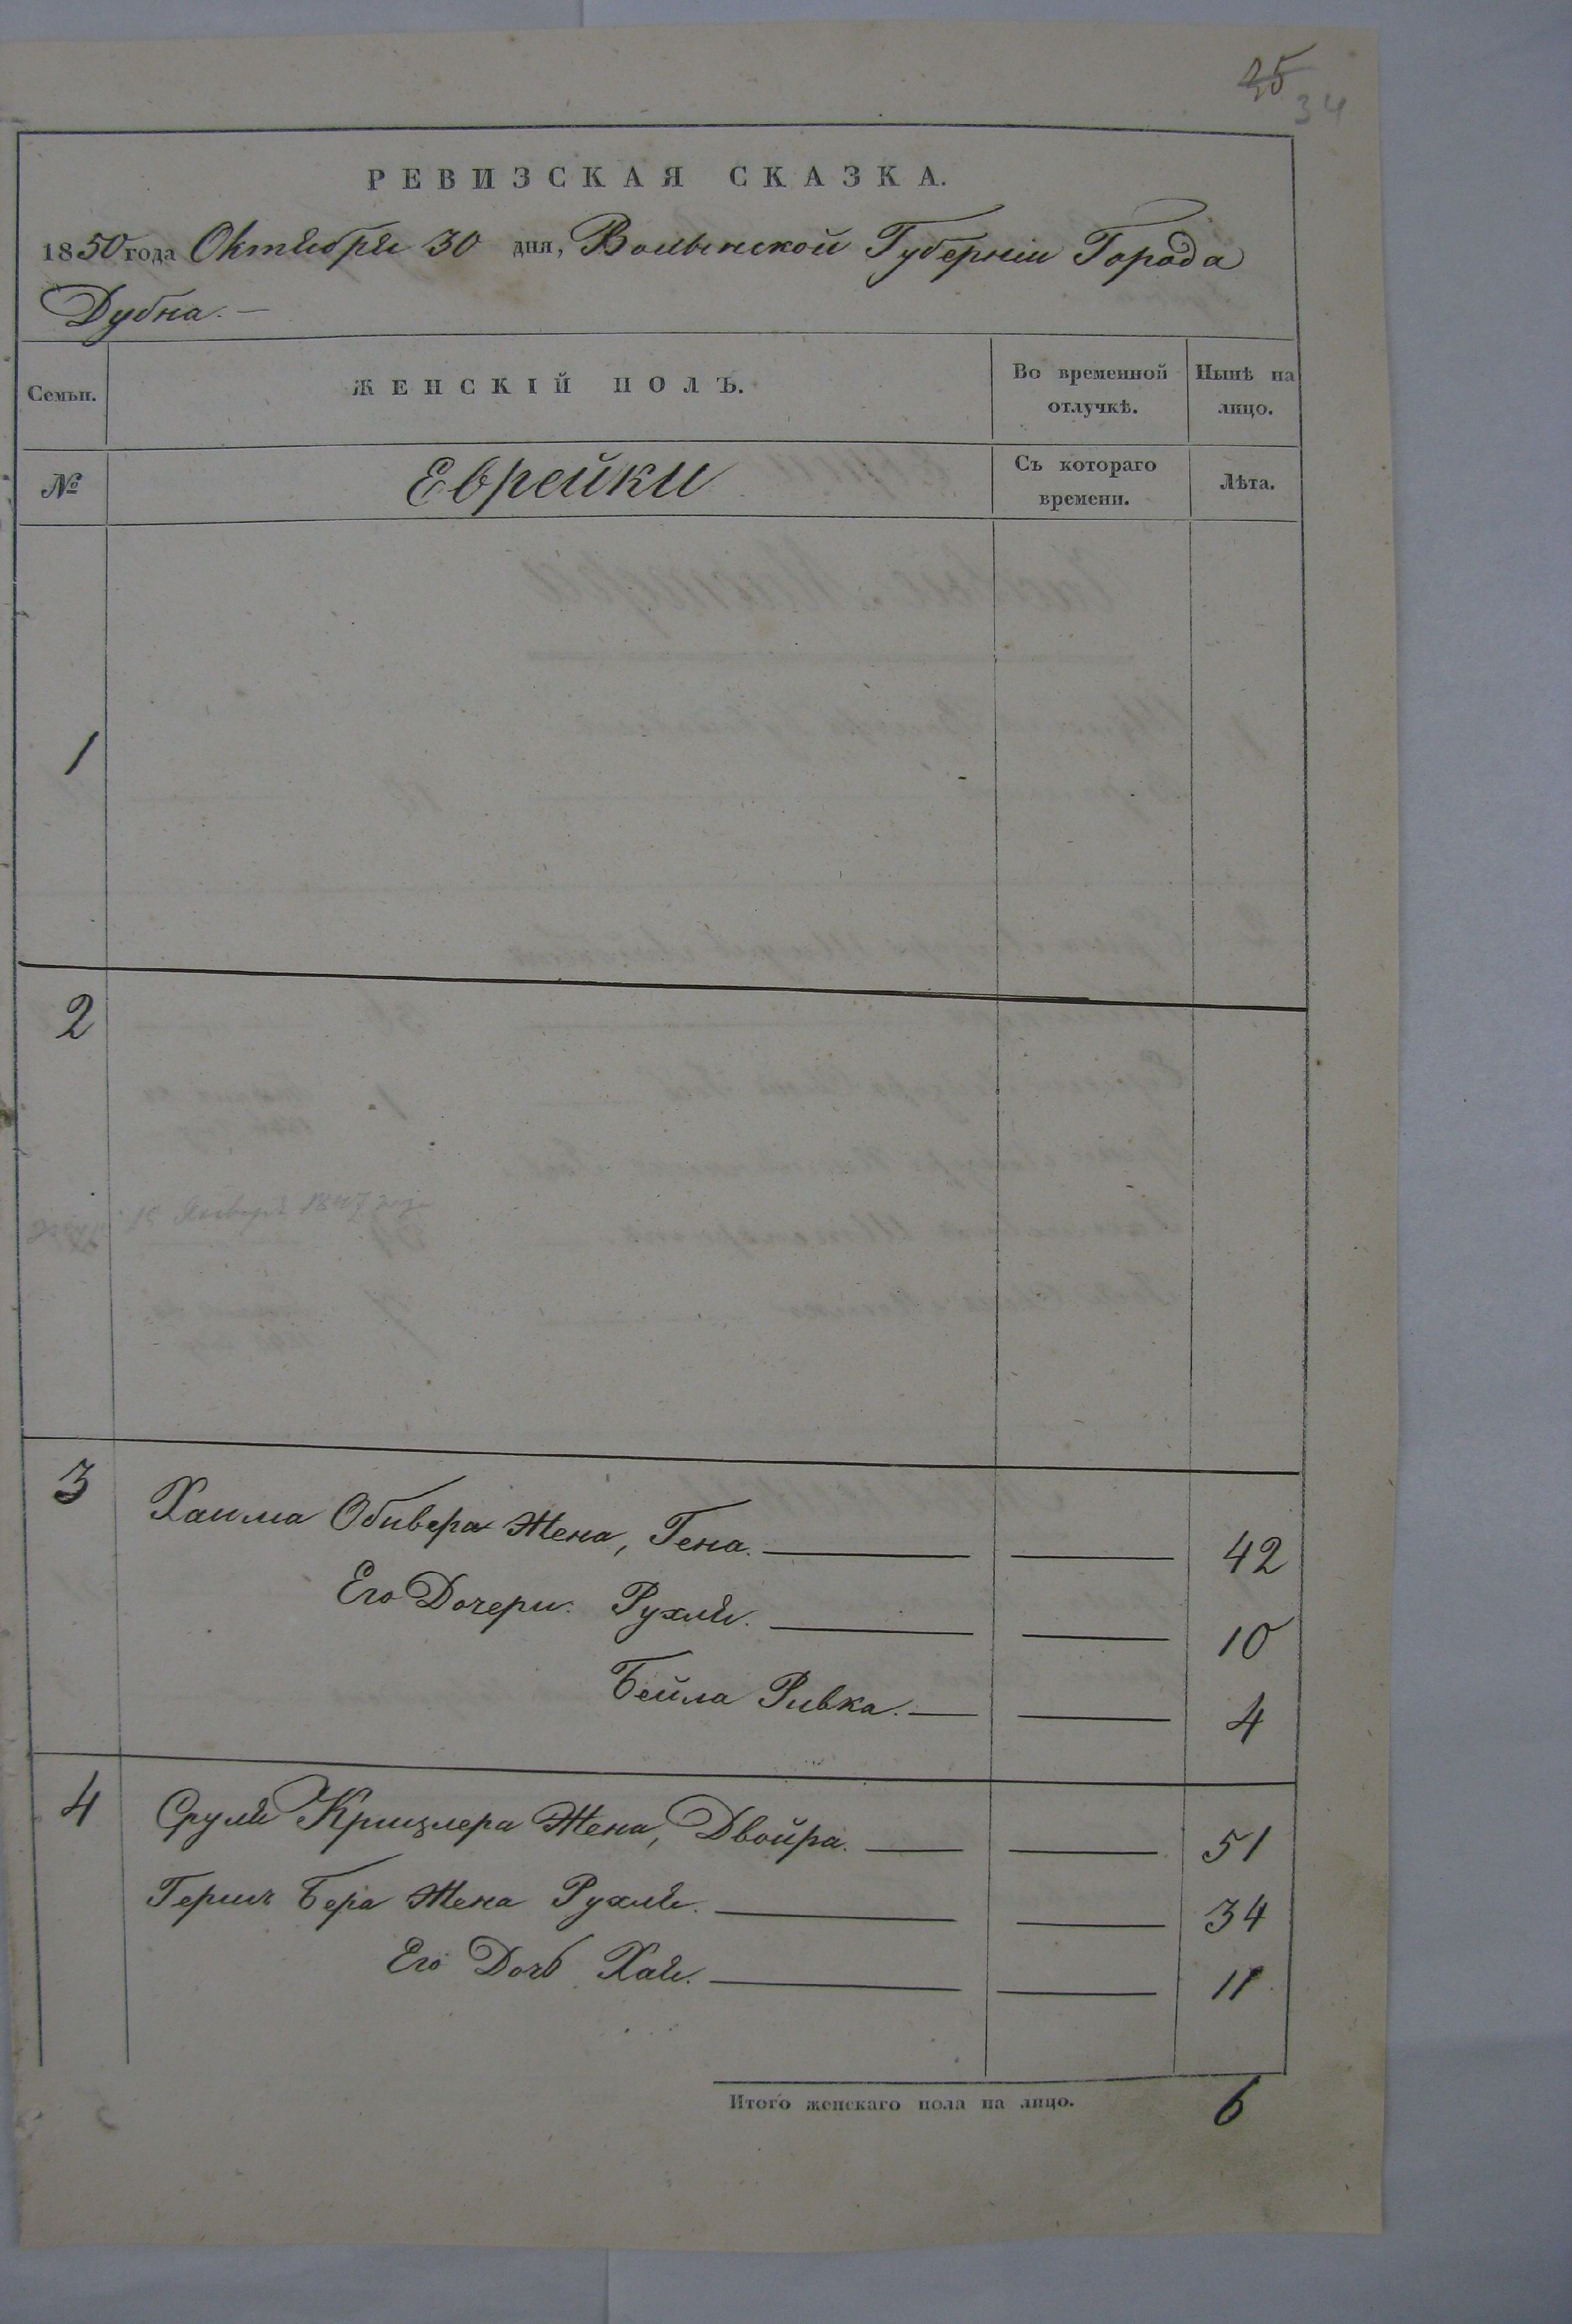 25
34
РЕВИЗСКАЯ СКАЗКА.
1850 года Октября 30 дня, Волынской Губерніи Города
Дубна.—
Семьи.
ЖЕНСКІЙ ПОЛЪ.
Во временной отлучкѣ.
Нынѣ на лицо.
№
Еврейки
Съ котораго времени.
Лѣта.
1
2
3 Хаима Обивера Жена, Гена. 42
Его Дочери: Рухля. 10
Бейла Ривка. 4
4 Сруля Крицлера Жена, Двойра. 51
Герша Бера Жена Рухля. 34
Его Дочь Хая. 11
Итого женскаго пола на лицо. 6